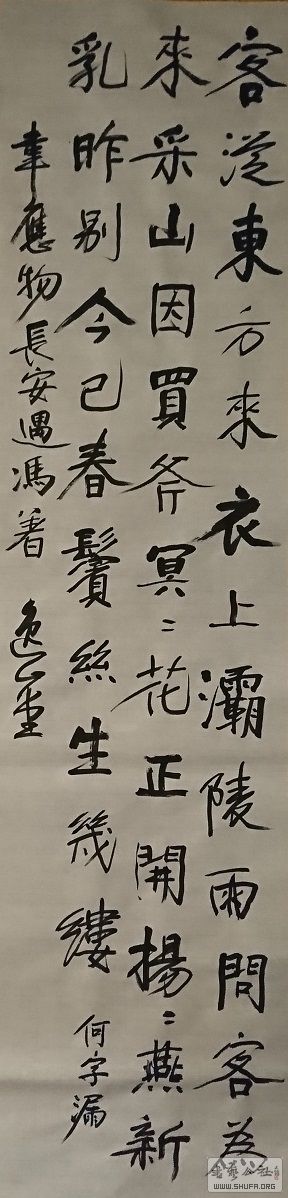 客從東方來衣上灞陵雨問客為
來采山因買斧冥〻花正開揚〻燕新
乳昨別今已春鬢絲生幾縷 何字漏
韋應物長安遇馮著
書藝公社
WWW.SHUFA.ORG